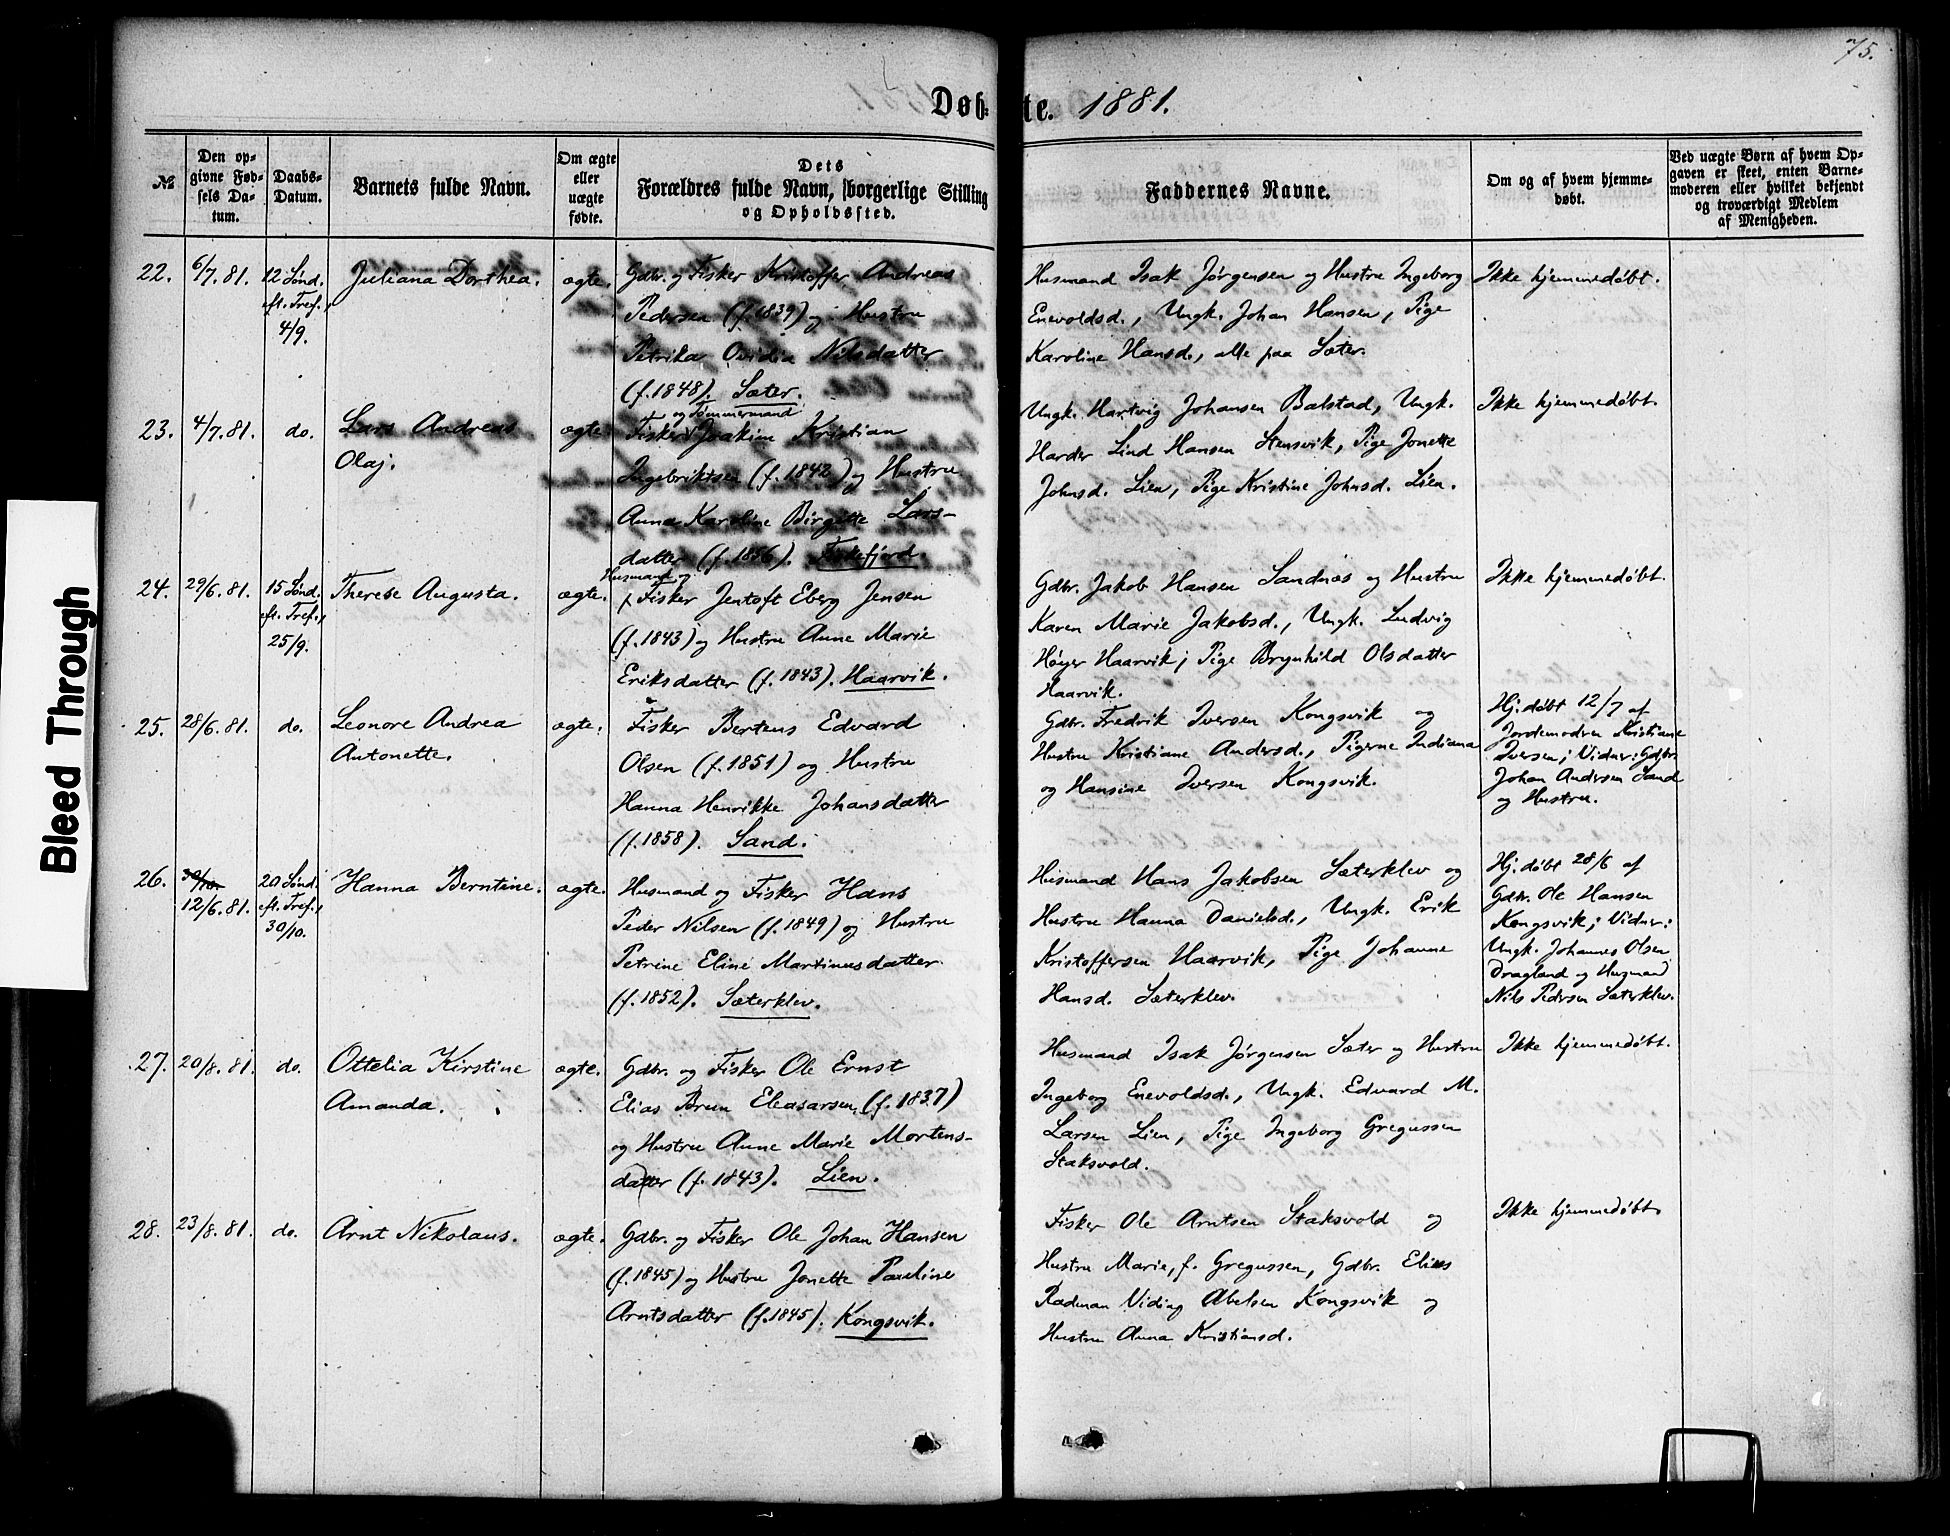 75.
Døbte. 1881.
№
Den opgivne Fødsels Datum.
Daabs-Datum.
Barnets fulde Navn.
Om ægte eller uægte fødte.
Dets Forældres fulde Navn, borgerlige Stilling og Opholdssted.
Faddernes Navne.
Om og af hvem hjemmedøbt.
Ved uægte Børn af hvem Opgaven er skeet, enten Barnemoderen eller hvilket bekjendt og troværdigt Medlem af Menigheden.
22.
6/7. 81.
12 Sønd.
eft. Tref.,
4/9.
Juliana Dorthea.
ægte.
Gdbr. og Fisker Kristoffer Andreas
Pedersen (f. 1839) og Hustru
Petrika Ovidia Nilsdatter
(f. 1848). Sæter.
Husmand Isak Jørgensen og Hustru Ingeborg
Enevoldsd., Ungk. Johan Hansen, Pige
Karoline Hansd., alle paa Sæter.
Ikke hjemmedøbt.
23.
4/7. 81.
do.
Lars Andreas
Olaj.
ægte
og Tømmermand
Fisker Joakim Kristian
Ingebriktsen (f. 1842) og Hustru
Anna Karoline Birgitte Lars-
datter (f. 1856). Fiskefjord.
Ungk. Hartvig Johansen Balstad, Ungk.
Harder Lind Hansen Stensvik, Pige Jonette
Johnsd. Lien, Pige Kristine Johnsd. Lien.
Ikke hjemmedøbt.
24.
29/6. 81.
15 Sønd.
eft. Tref.,
25/9.
Therese Augusta.
ægte.
Husmand og
Fisker Jentoft Eberg Jensen
(f. 1843) og Hustru Anne Marie
Eriksdatter (f. 1843). Haarvik.
Gdbr. Jakob Hansen Sandnæs og Hustru
Karen Marie Jakobsd., Ungk. Ludvig
Høyer Haarvik; Pige Brynhild Olsdatter
Haarvik.
Ikke hjemmedøbt.
25.
28/6. 81.
do.
Leonore Andrea
Antonette.
ægte.
Fisker Berteus Edvard
Olsen (f. 1851) og Hustru
Hanna Henrikke Johansdatter
(f. 1858). Sand.
Gdbr. Fredrik Iversen Kongsvik og
Hustru Kristiane Andersd., Pigerne Indiana
og Hansine Iversen Kongsvik.
Hj. døbt 12/7 af
Jordemodren Kristiane
Iversen; Vidner: Gdbr.
Johan Andersen Sand
og Hustru.
26.
30/10.
12/6. 81.
20 Sønd.
eft. Tref.,
30/10.
Hanna Berntine.
ægte.
Husmand og Fisker Hans
Peder Nilsen (f. 1849) og Hustru
Petrine Eline Martinusdatter
(f. 1852). Sæterklev.
Husmand Hans Jakobsen Sæterklev og
Hustru Hanna Danielsd., Ungk. Erik
Kristoffersen Haarvik, Pige Johanne
Hansd. Sæterklev.
Hj. døbt 28/6 af
Gdbr. Ole Hansen
Kongsvik; Vidner:
Ungk. Johannes Olsen
Dragland og Husmand
Nils Pedersen Sæterklev.
27.
20/8. 81.
do.
Ottelia Kirstine
Amanda.
ægte.
Gdbr. og Fisker Ole Ernst
Elias Brun Eleasarsen (f. 1837)
og Hustru Anne Marie Mortens-
datter (f. 1843). Lien.
Husmand Isak Jørgensen Sæter og Hustru
Ingeborg Enevoldsd., Ungk. Edvard M.
Larsen Lien, Pige Ingeborg Gregussen
Staksvold.
Ikke hjemmedøbt.
28.
23/8. 81.
do.
Arnt Nikolaus.
ægte.
Gdbr. og Fisker Ole Johan Hansen
(f. 1845) og Hustru Jonette Pauline
Arntsdatter (f. 1845). Kongsvik.
Fisker Ole Arntsen Staksvold og
Hustru Marie, f. Gregussen, Gdbr. Elias
Radman Viding Abelsen Kongsvik og
Hustru Anna Kristiansd.
Ikke hjemmedøbt.
Bleed Through